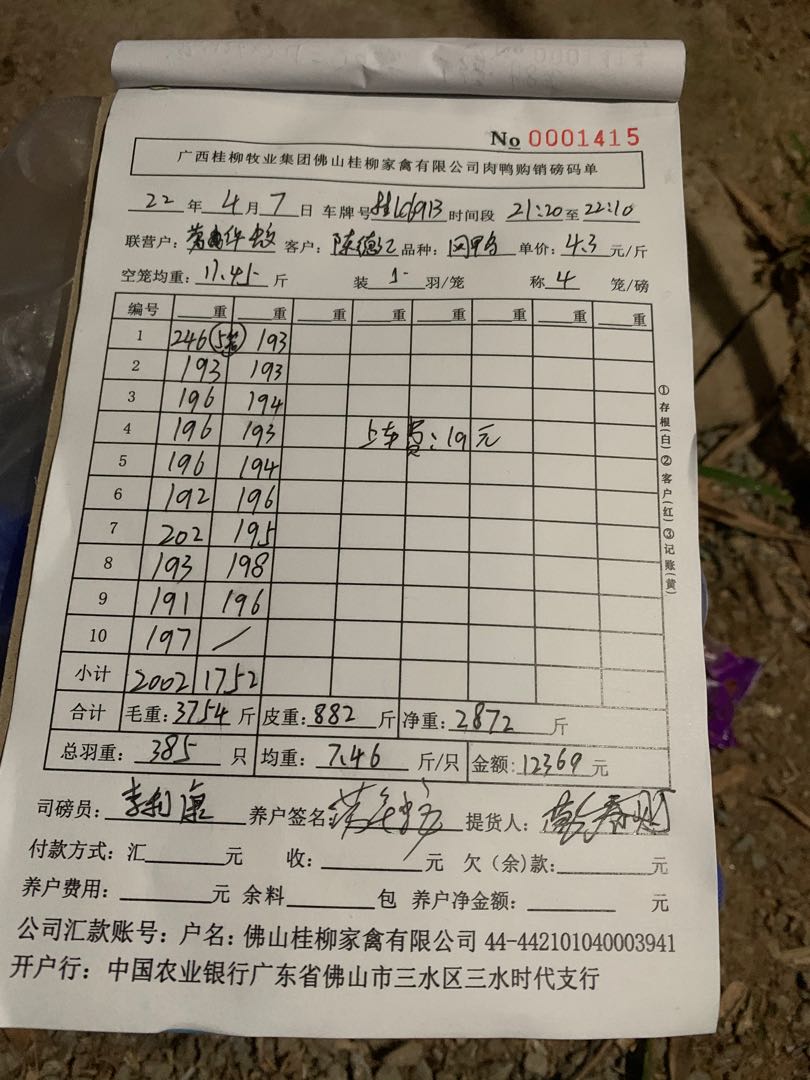 No 0001415
广西桂柳牧业集团佛山桂柳家禽有限公司肉鸭购销磅码单
22年4月7日 车牌号 时间段 21:20至22:10
联营户: 客户:陈德江 品种: 单价:4.3元/斤
空笼均重:11.45斤 装5羽/笼 称4笼/磅
编号 重 重 重 重 重 重 重 重
1 246 (5笼) 193
2 193 193
3 196 194
4 196 193 上车费:19元
5 196 194
6 192 196
7 202 195
8 193 198
9 191 196
10 197 /
小计 2002 1752
合计 毛重:3754斤 皮重:882斤 净重:2872斤
总羽重:385只 均重:7.46斤/只 金额:12369元
司磅员:李利康 养户签名 提货人:
付款方式:汇 元 收: 元 欠(余)款: 元
养户费用: 元 余料 包 养户净金额: 元
公司汇款账号:户名:佛山桂柳家禽有限公司 44-442101040003941
开户行:中国农业银行广东省佛山市三水区三水时代支行
①存根(白)②客户(红)③记账(黄)